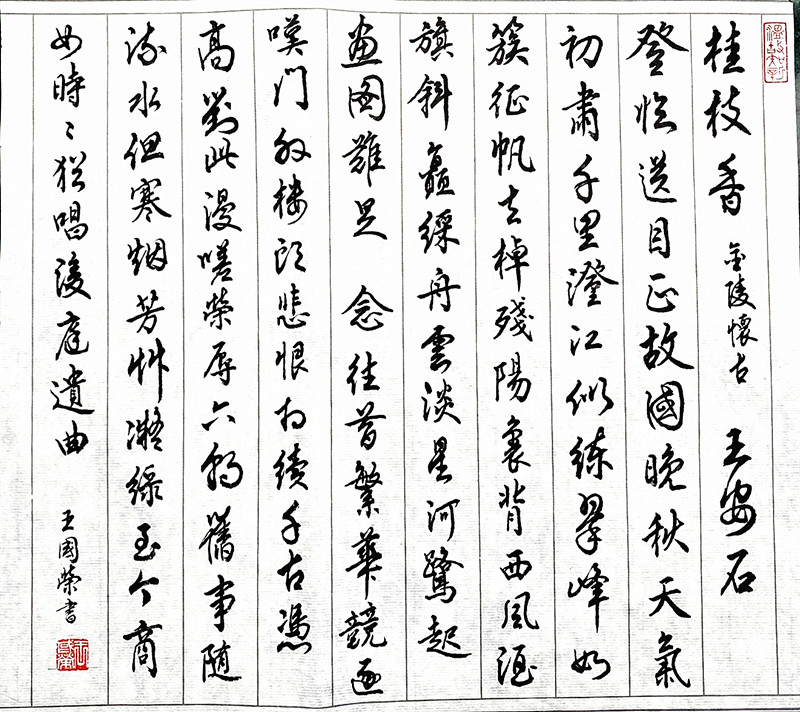 溫故知新
桂枝香 金陵懷古 王安石
登臨送目正故國晚秋天氣
初肅千里澄江似練翠峰如
簇征帆去棹殘陽裏背西風酒
旗斜矗綵舟雲淡星河鷺起
畫圖難足 念往昔繁華競逐
嘆門外樓頭悲恨相續千古憑
高對此漫嗟榮辱六朝舊事隨
流水但寒烟芳艸凝綠至今商
女時〻猶唱後庭遺曲 王國榮書